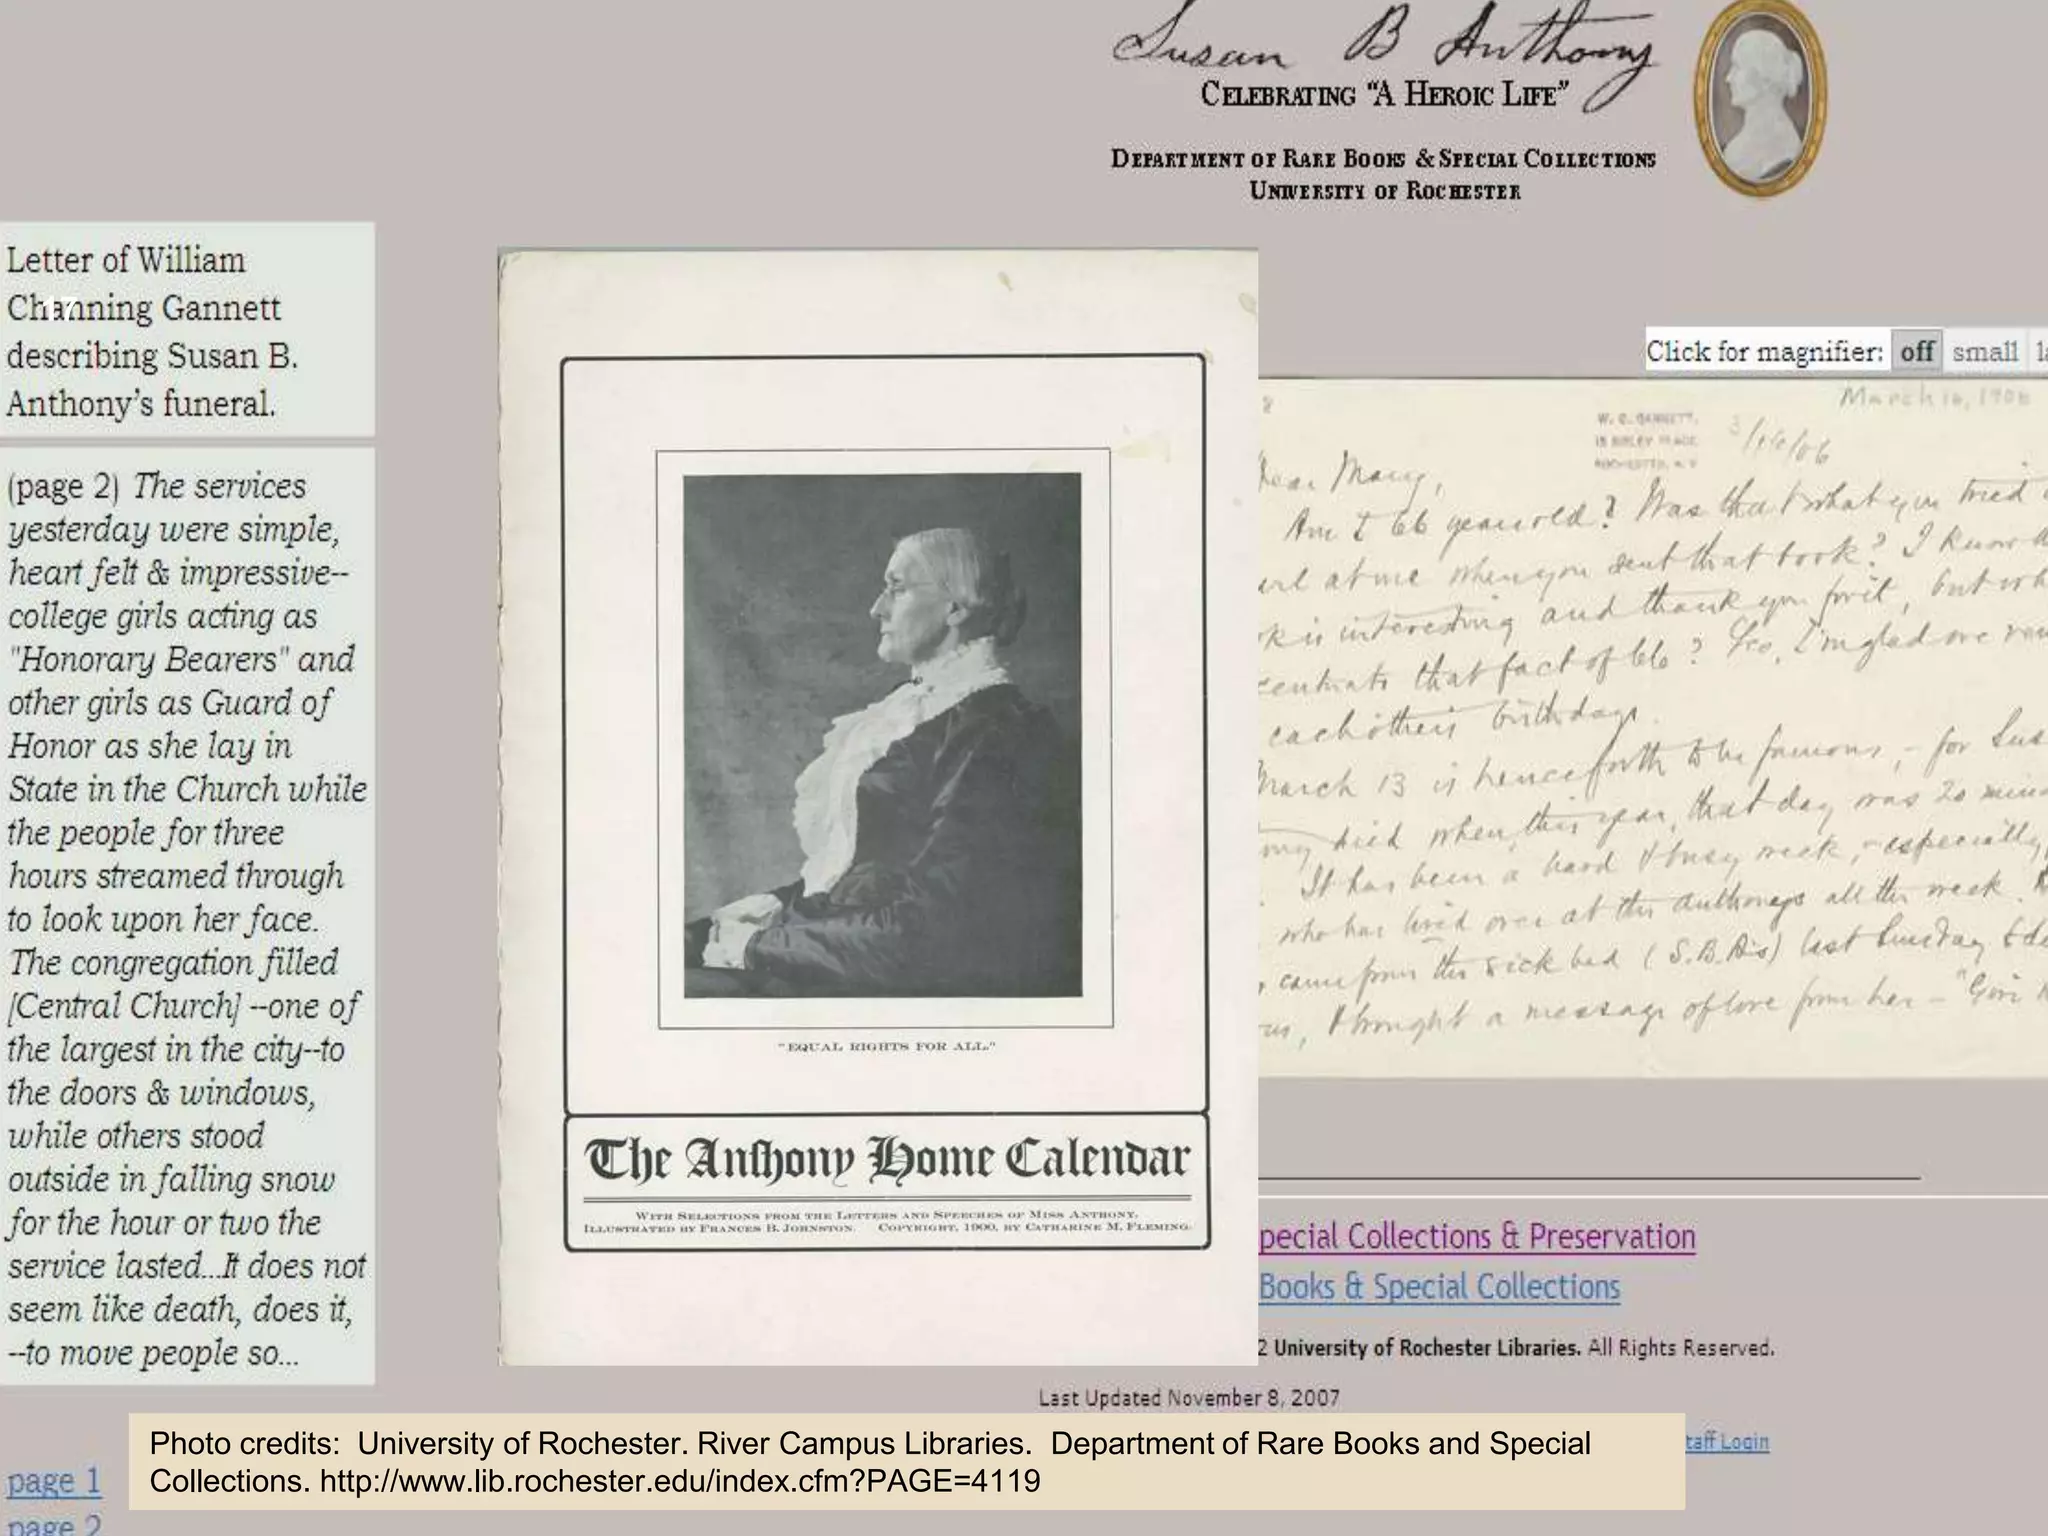 Susan B Anthony
CELEBRATING “A HEROIC LIFE”
DEPARTMENT OF RARE BOOKS & SPECIAL COLLECTIONS
UNIVERSITY OF ROCHESTER
Letter of William
Channing Gannett
describing Susan B.
Anthony’s funeral.
17
(page 2) The services
yesterday were simple,
heart felt & impressive--
college girls acting as
"Honorary Bearers" and
other girls as Guard of
Honor as she lay in
State in the Church while
the people for three
hours streamed through
to look upon her face.
The congregation filled
[Central Church] --one of
the largest in the city--to
the doors & windows,
while others stood
outside in falling snow
for the hour or two the
service lasted...It does not
seem like death, does it,
--to move people so...
page 1
page 2
"EQUAL RIGHTS FOR ALL."
The Anthony Home Calendar
WITH SELECTIONS FROM THE LETTERS AND SPEECHES OF MISS ANTHONY.
ILLUSTRATED BY FRANCES B. JOHNSTON. COPYRIGHT, 1900, BY CATHARINE M. FLEMING.
Click for magnifier: off small
March 16, 1906
W. C. GANNETT,
15 SIBLEY PLACE
ROCHESTER, N. Y.
3/16/06
Dear Mary,
Am I 66 years old? Was that what you tried
at me when you sent that book? I know
is interesting and thank you for it, but
that fact of 66? Yes, I'm glad we
each other's birthdays.
March 13 is henceforth to be famous, - for
died when, this year, that day was 20
It has been a hard & busy week, - especially,
who has lived over at the Anthonys all the week.
came from the sick bed (S.B.A's) last Sunday
brought a message of love from her - "Give
pecial Collections & Preservation
Books & Special Collections
2 University of Rochester Libraries. All Rights Reserved.
Last Updated November 8, 2007
taff Login
Photo credits: University of Rochester. River Campus Libraries. Department of Rare Books and Special
Collections. http://www.lib.rochester.edu/index.cfm?PAGE=4119